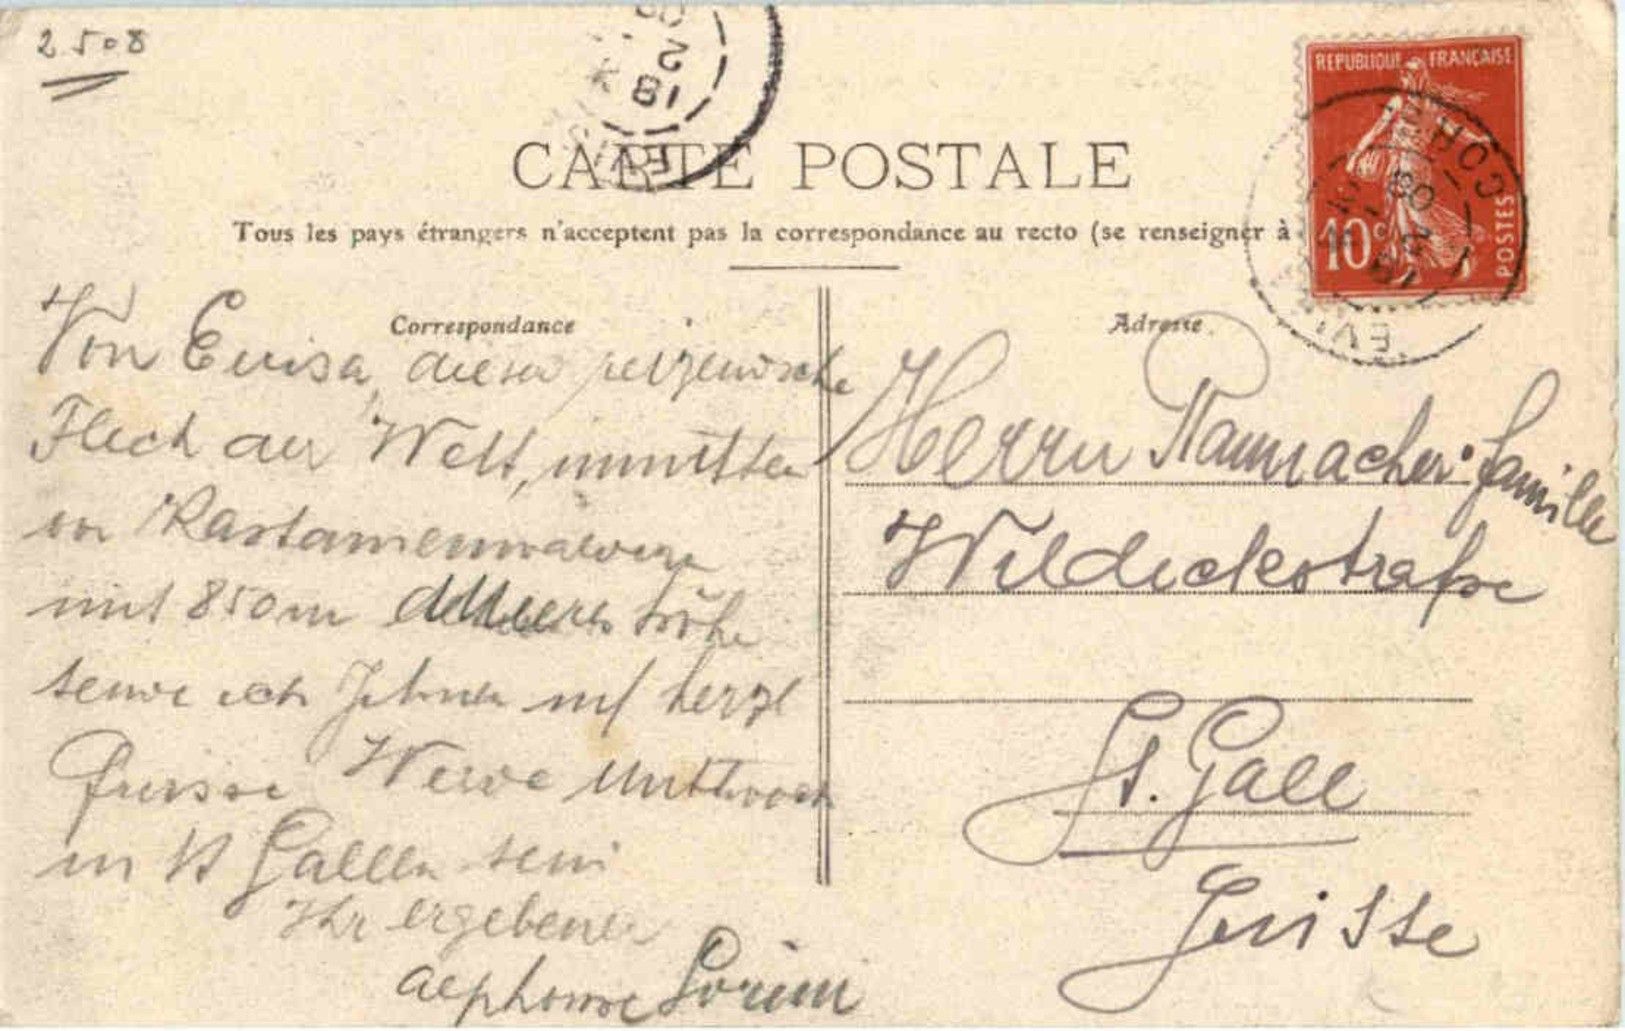 2508
CARTE POSTALE
Tous les pays étrangers n'acceptent pas la correspondance au recto (se renseigner à
REPUBLIQUE FRANÇAISE
10c
POSTES
COR
08
18
EVI
2
18
Correspondance
Von Evisa, dieser reizendsche
Fleck der Welt, inmitten
von Kastanienwäldern
mit 850m Höhe
sende ich Ihnen m/ herzl
Grüsse Werde Mittwoch
in St Gallen sein
Ihr ergebener
Alphonse
Adresse
Herrn Familie
Wildeckstraße
St. Gall
Suisse